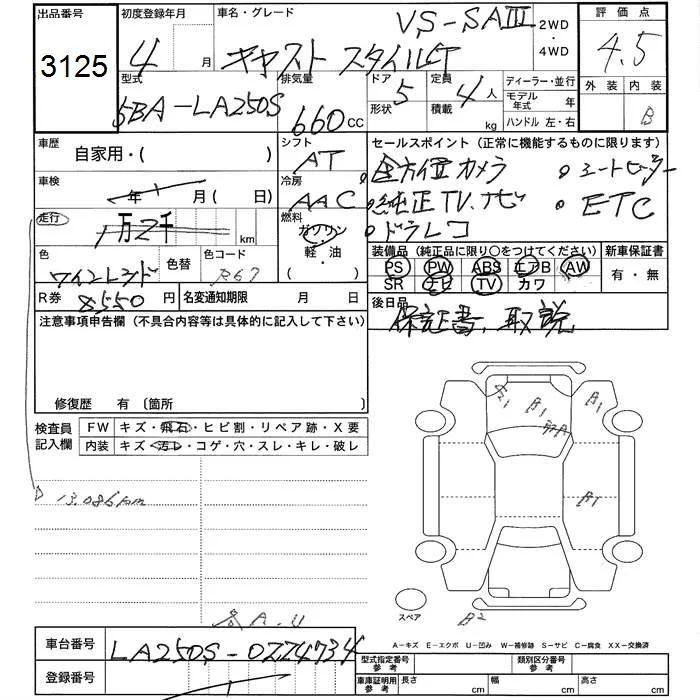 出品番号 初度登録年月 車名・グレード VS-SAⅢ 2WD・4WD 評価点
3125 4 月 キャスト スタイル 4.5
型式 排気量 ドア形状 定員積載 ディーラー・並行 外装 内装
5BA-LA250S 660 CC 5 4 人 kg モデル年式 年 B
ハンドル 左・右
車歴 自家用・( ) シフト AT セールスポイント（正常に機能するものに限ります）
全方位カメラ ○シートヒーター
車検 年 月 ( 日) 冷房 AAC 純正TV.ナビ ○ETC
走行 万2千 km 燃料 ガソリン・軽・油 ・ドラレコ
色 ワインレッド 色替 色コード R67 ( )
装備品（純正品に限り○をつけてください） 新車保証書
PS PW ABS エアB AW 有・無
SR ナビ TV カワ
R券 8550 円 名変通知期限 月 日
後日品
保証書、取説
注意事項申告欄（不具合内容等は具体的に記入して下さい）
修復歴 有 〔箇所 〕
検査員記入欄 FW キズ・飛石・ヒビ割・リペア跡・X要
内装 キズ・汚レ・コゲ・穴・スレ・キレ・破レ
13.086km
B1 A1
B1
スペア B2
A.U
A－キズ E－エクボ U－凹み W－補修跡 S－サビ C－腐食 XX－交換済
車台番号 LA250S-0224734
登録番号
型式指定番号 参考 類別区分番号 参考
車庫証明用 参考 長さ cm 幅 cm 高さ cm